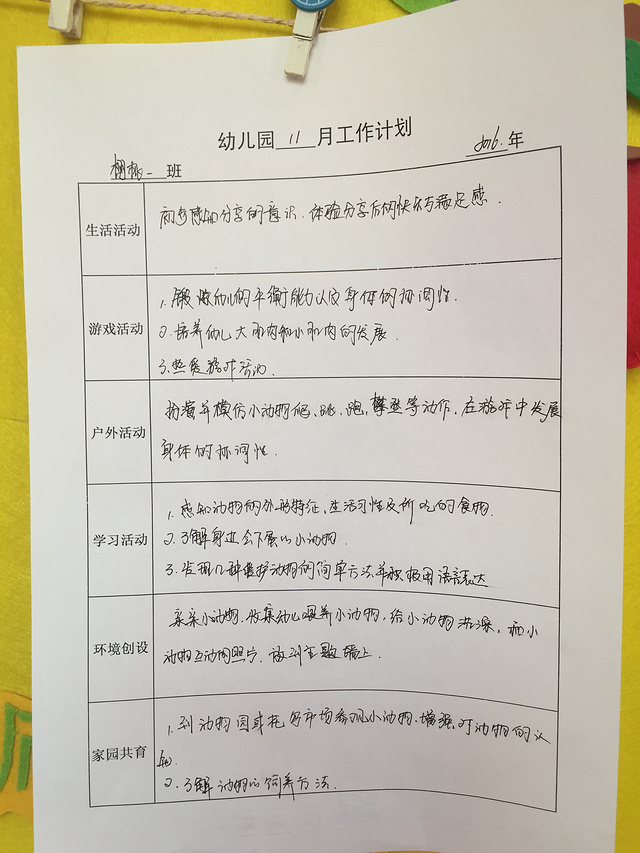 幼儿园 11 月工作计划
一 班 2016. 年
生活活动
初步感知分享的意识、体验分享后的快乐与满足感.
游戏活动
1.锻炼幼儿的平衡能力以及身体的协调性.
2.培养幼儿大肌肉和小肌肉的发展.
3.热爱游戏活动.
户外活动
扮演并模仿小动物爬、跳、跑,攀登等动作,在游戏中发展
身体的协调性.
学习活动
1.感知动物的外形特征、生活习性及所吃的食物.
2.了解身边会下蛋的小动物.
3.发现几种保护动物的简单方法并积极用语言表达
环境创设
亲亲小动物.收集幼儿喂养小动物,给小动物洗澡,和小
动物互动的照片.贴到主题墙上.
家园共育
1.到动物园或花鸟市场参观小动物、增强对动物的认
知.
2.了解动物的饲养方法.